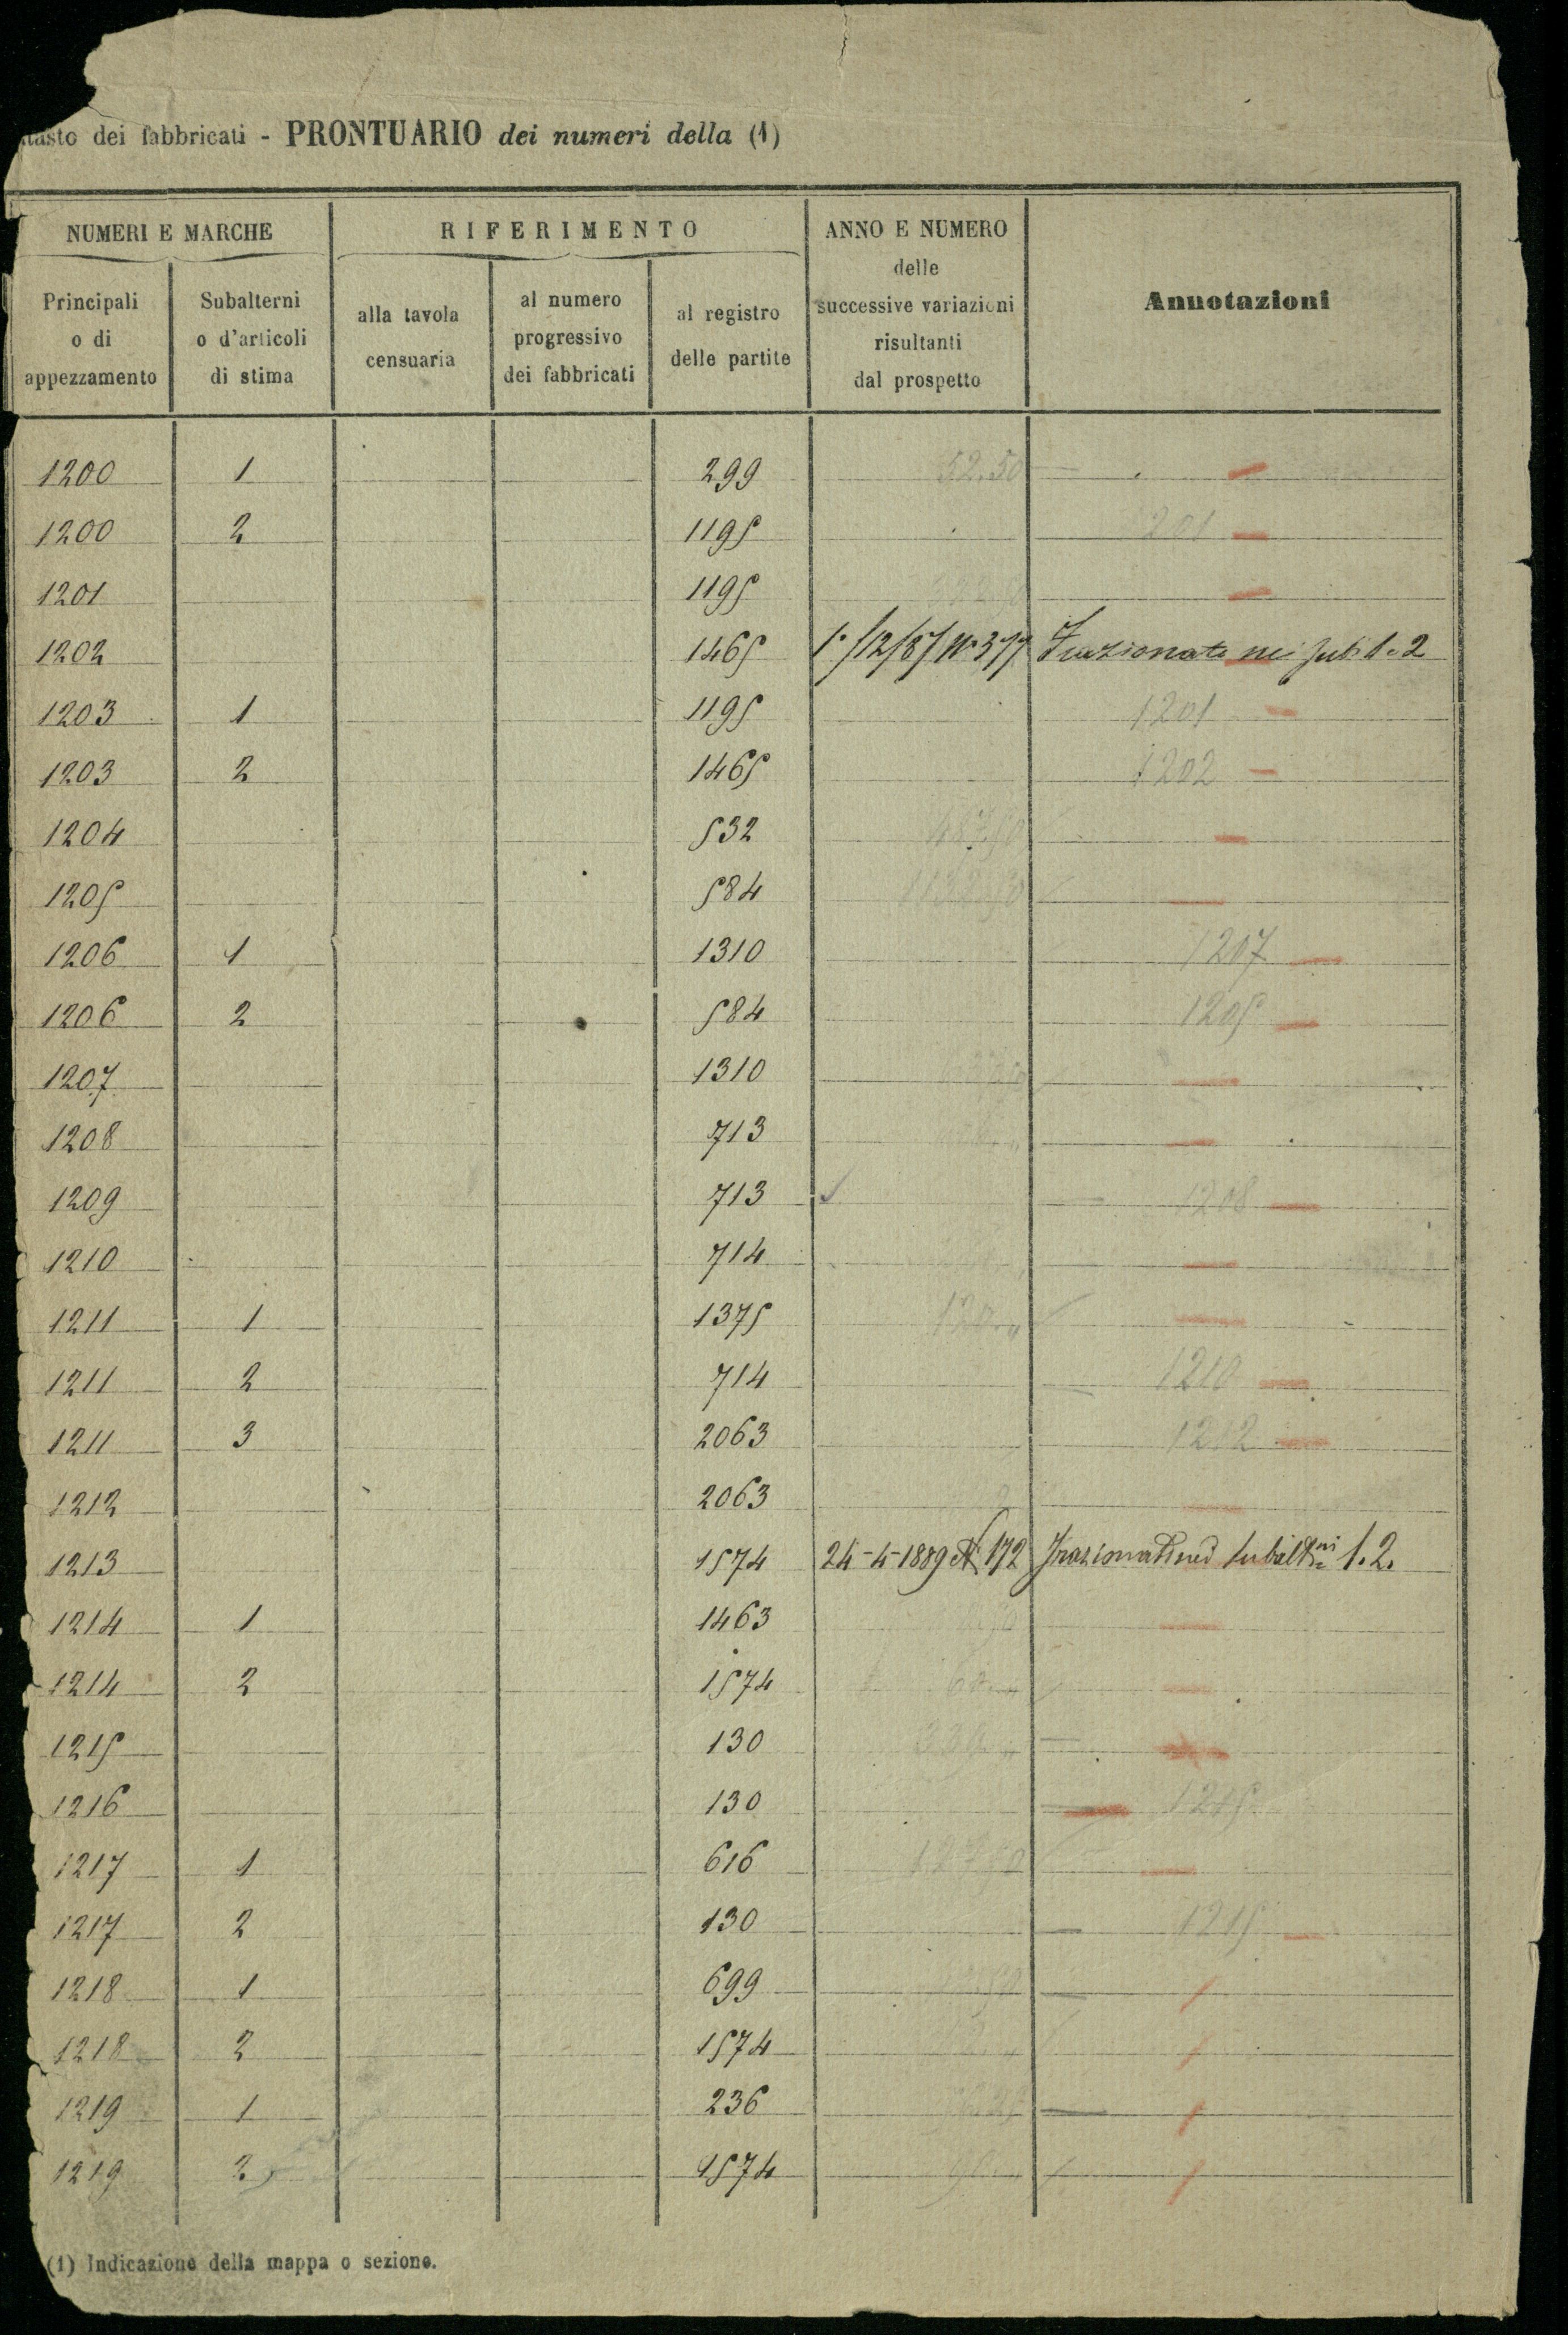 dei fabbricati - PRONTUARIO dei numeri della (1)
NUMERI E MARCHE RIFERIMENTO ANNO E NUMERO delle successive variazioni risultanti dal prospetto Annotazioni
Principali o di appezzamento Subalterni o d'articoli di stima alla tavola censuaria al numero progressivo dei fabbricati al registro delle partite
1200 1 299 52.50
1200 2 1195 201
1201 1195
1202 1465 1°/12/87 N° 377 Frazionato nei sub 1. 2
1203 1 1195 1201
1203 2 1465 1202
1204 532
1205 584
1206 1 1310 1207
1206 2 584 1205
1207 1310
1208 713
1209 713 1208
1210 714
1211 1 1375
1211 2 714 1210
1211 3 2063 1212
1212 2063
1213 1574 24-4-1889 N° 172 1. 2.
1214 1 1463
1214 2 1574
1215 130
1216 130 1215
1217 1 616
1217 2 130 1215
1218 1 699
1218 2 1574
1219 1 236
1219 2 1574
(1) Indicazione della mappa o sezione.